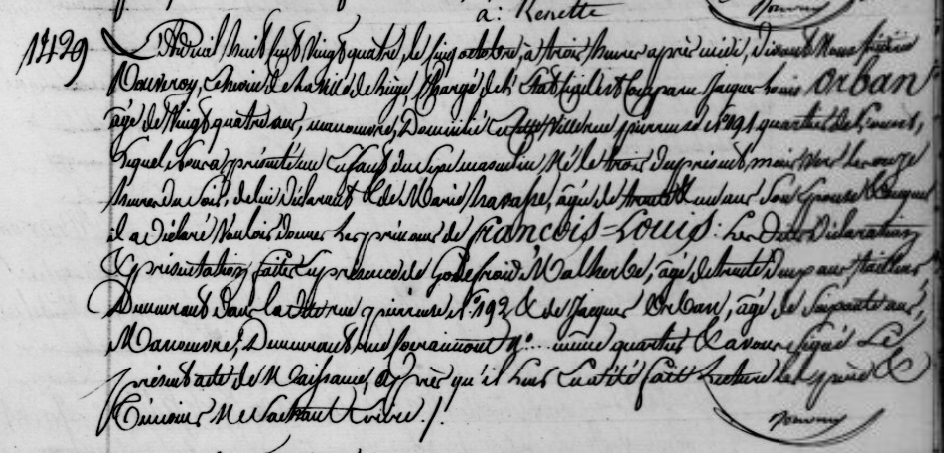 à: Renette
1429
L'An dix huit cent vingt quatre, le cinq octobre, à trois heures après midi, devant Nous
échevin de la ville de Liège, chargé de l'Etat Civil est comparu Jacques Louis Orban
âgé de vingt quatre ans, manoeuvre, Domicilié en cette Ville rue pierreuse N° 191 quartier de
Lequel Nous a présenté un enfant du sexe masculin, Né le trois du présent mois vers les onze
heures du soir, de lui Déclarant & de Marie âgée de trente un ans son Epouse & auquel
il a Déclaré Vouloir donner les prénoms de françois=Louis: Les dites Déclaration
& présentation faites en présence de Godefroid Malherbe, âgé de trente deux ans, tailleur
Demeurant dans la dite rue pierreuse, N° 192 & de Jacques Orban, âgé de soixante ans,
Manoeuvre, Demeurant rue N° même quartier & avons signé Le
présent acte de Naissance, après qu'il leur en a été fait Lecture le père &
témoins Ne sachant écrire./.